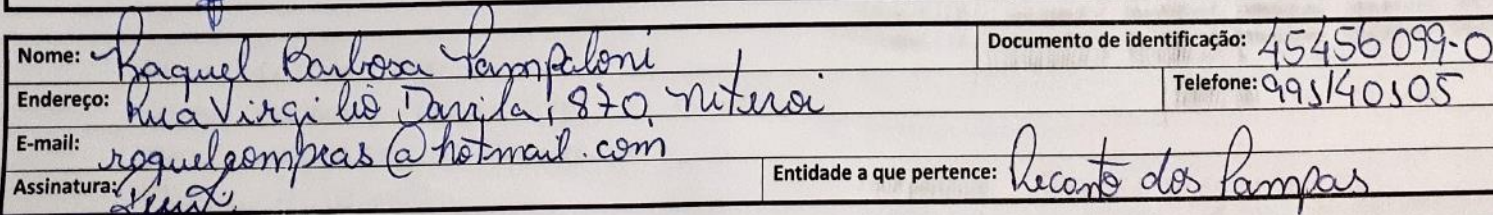 Nome: Raquel Barbosa Pampaloni Documento de identificação: 45456099-0
Endereço: Rua Virgilio Davila, 870, niteroi Telefone: 995140505
E-mail: roquelcompras@hotmail.com
Assinatura: Entidade a que pertence: Recanto dos Pampas